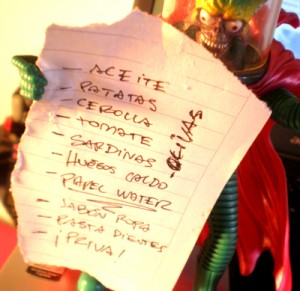 - ACEITE
- PATATAS
- CEBOLLA
- TOMATE
- SARDINAS
- HUESOS CALDO
- PAPEL WATER
- JABÓN ROPA
- PASTA DIENTES
- ¡PRIVA!
- OLIVAS